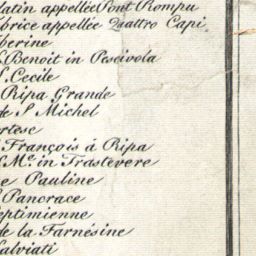 latin appellée Pont Rompu
brice appellée Quattro Capi
berine
S. Benoit in Pescivola
S. Cecile
Ripa Grande
de S. Michel
rtese
François à Ripa
Me. in Trastevere
e Pauline
Panorace
eptimienne
de la Farnésine
alviati